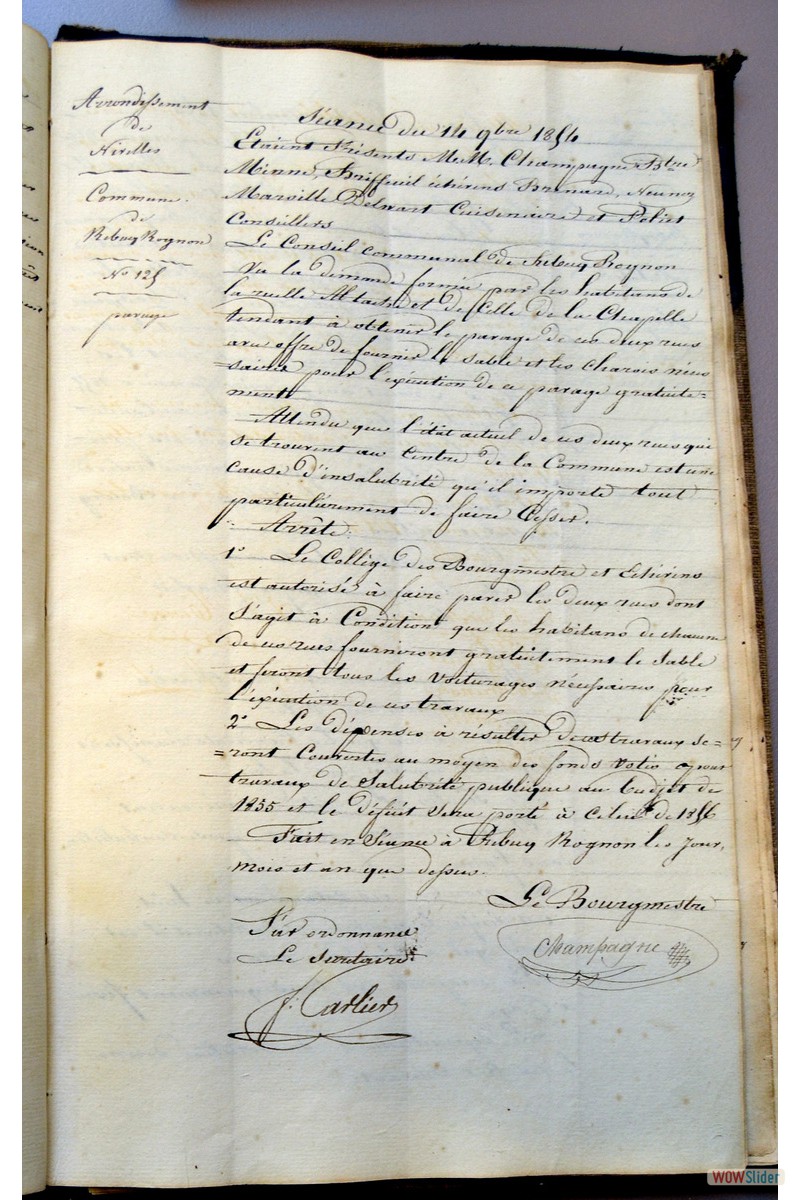 Arrondissement
de
Nivelles
Commune
de
Rebecq Rognon
N° 125
pavage
Séance du 14 9bre 1854
Etaient Présents M.M. Champagne Btre
Minne, Briffeuil échevins Brenard, Neunez
Marville Delwart Cuisenaire et Poliet
Conseillers
Le Conseil communal de Rebecq Rognon
Vu la demande formée par les habitans de
la ruelle et de celle de la Chapelle
tendant à obtenir le pavage de ces deux rues
avec offre de fournir le sable et les charois néces
=saires pour l'exécution de ce pavage gratuite=
ment
Attendu que l'état actuel de ces deux rues qui
se trouvent au Centre de la Commune est une
cause d'insalubrité qu'il importe tout
particulièrement de faire Cesser.
Arrête:
1° Le Collège des Bourgmestre et Echevins
est autorisé à faire paver les deux rues dont
s'agit à Condition que les habitans de chacune
de ces rues fourniront gratuitement le Sable
et feront tous les Voiturages nécessaires pour
l'exécution de ces travaux
2° Les dépenses à résulter de ces travaux se=
=ront Couvertes au moyen des fonds Votés pour
travaux de Salubrité publique au budjet de
1855 et le déficit sera porté à Celui de 1856
Fait en Séance à Rebecq Rognon les Jour,
mois et an que dessus.
Le Bourgmestre
Champagne
Par ordonnance
Le Secrétaire
f. Carlier
WOWSlider